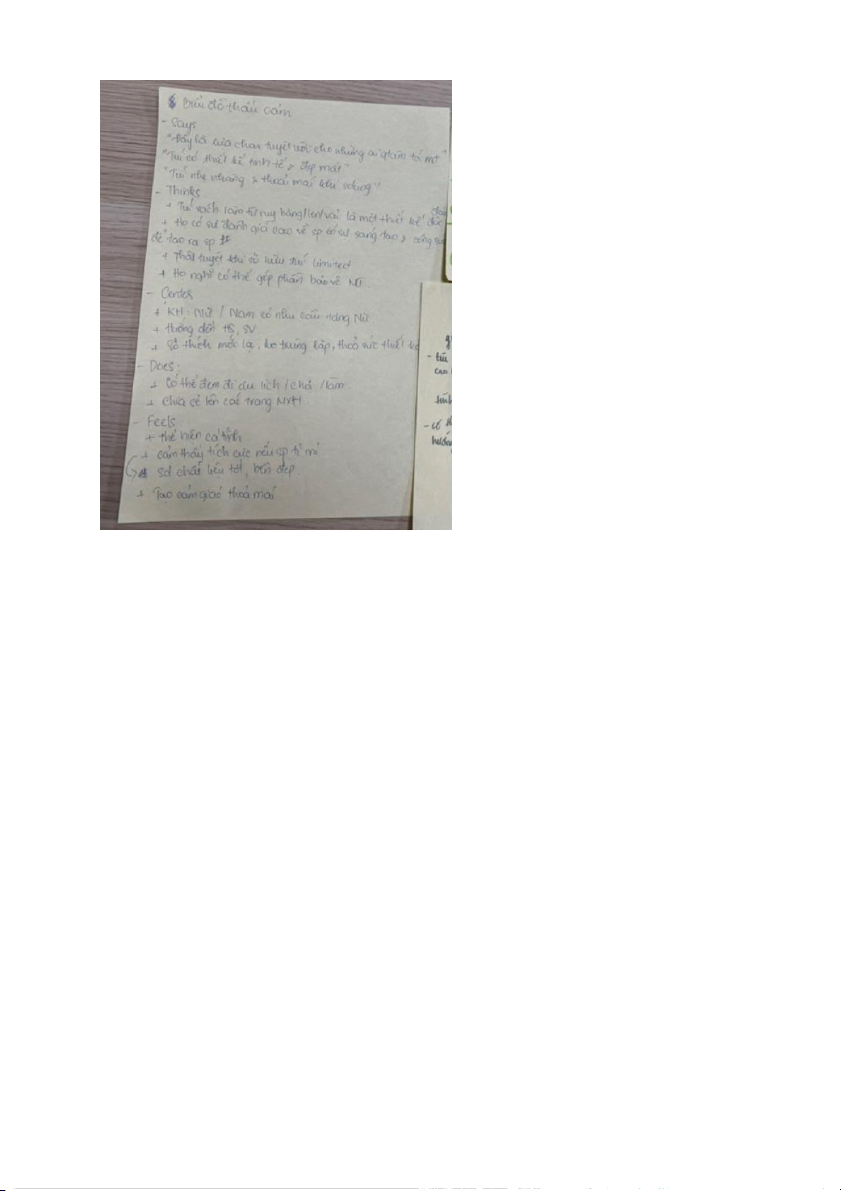 Bản đồ thấu cảm
- Says
"Đây là lựa chọn tuyệt vời cho những ai qtâm tới mt"
"Túi có thiết kế tinh tế & đẹp mắt"
"Túi nhẹ nhàng & thoải mái khi sdụng"
- Thinks
+ Túi xách làm từ ruy băng/len/vải là một thiết kế độc đáo
+ Họ có sự đánh giá cao về sp có sự sáng tạo & công sức
để tạo ra sp
+ Thật tuyệt khi sở hữu túi limited
+ Họ nghĩ có thể góp phần bảo vệ MT
- Center
+ KH: Nữ / Nam có nhu cầu
+ Hướng đến HS, SV
+ Sở thích mới lạ, ko trùng lặp, thoả sức thiết kế
- Does:
+ Có thể đem đi du lịch / chơi / làm
+ Chia sẻ lên các trang MXH
- Feels
+ thể hiện cá tính
+ cảm thấy tích cực nếu sp tỉ mỉ
sd chất liệu tốt, bền đẹp.
+ Tạo cảm giác thoải mái
- túi
cao
- có